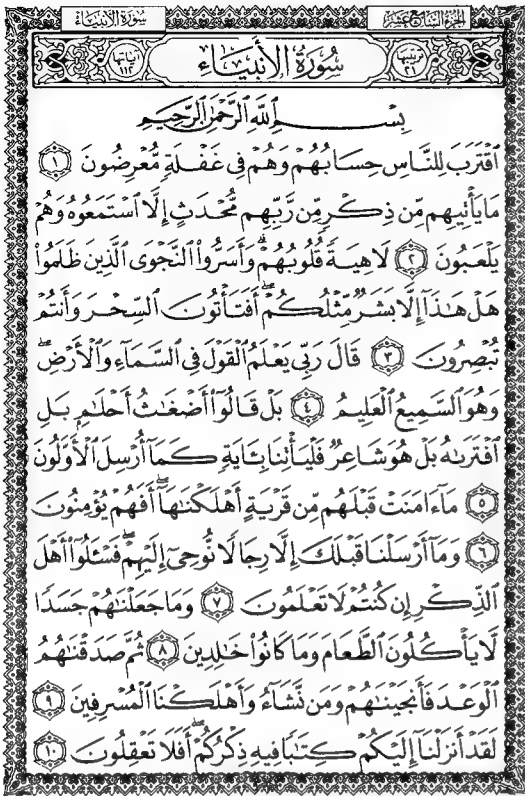 سورة الأنبياء
الجزء السابع عشر
آياتها ١١٢
سُورَةُ الأَنْبِيَاءِ
ترتيبها ٢١
بِسْمِ ٱللَّهِ ٱلرَّحْمَٰنِ ٱلرَّحِيمِ
ٱقْتَرَبَ لِلنَّاسِ حِسَابُهُمْ وَهُمْ فِى غَفْلَةٍ مُّعْرِضُونَ ١
مَا يَأْتِيهِم مِّن ذِكْرٍ مِّن رَّبِّهِم مُّحْدَثٍ إِلَّا ٱسْتَمَعُوهُ وَهُمْ
يَلْعَبُونَ ٢ لَاهِيَةً قُلُوبُهُمْ ۗ وَأَسَرُّوا۟ ٱلنَّجْوَى ٱلَّذِينَ ظَلَمُوا۟
هَلْ هَٰذَآ إِلَّا بَشَرٌ مِّثْلُكُمْ ۖ أَفَتَأْتُونَ ٱلسِّحْرَ وَأَنتُمْ
تُبْصِرُونَ ٣ قَالَ رَبِّى يَعْلَمُ ٱلْقَوْلَ فِى ٱلسَّمَآءِ وَٱلْأَرْضِ ۖ
وَهُوَ ٱلسَّمِيعُ ٱلْعَلِيمُ ٤ بَلْ قَالُوٓا۟ أَضْغَٰثُ أَحْلَٰمٍۭ بَلِ
ٱفْتَرَىٰهُ بَلْ هُوَ شَاعِرٌ فَلْيَأْتِنَا بِـَٔايَةٍ كَمَآ أُرْسِلَ ٱلْأَوَّلُونَ
٥ مَآ ءَامَنَتْ قَبْلَهُم مِّن قَرْيَةٍ أَهْلَكْنَٰهَآ ۖ أَفَهُمْ يُؤْمِنُونَ
٦ وَمَآ أَرْسَلْنَا قَبْلَكَ إِلَّا رِجَالًا نُّوحِىٓ إِلَيْهِمْ ۖ فَسْـَٔلُوٓا۟ أَهْلَ
ٱلذِّكْرِ إِن كُنتُمْ لَا تَعْلَمُونَ ٧ وَمَا جَعَلْنَٰهُمْ جَسَدًا
لَّا يَأْكُلُونَ ٱلطَّعَامَ وَمَا كَانُوا۟ خَٰلِدِينَ ٨ ثُمَّ صَدَقْنَٰهُمُ
ٱلْوَعْدَ فَأَنجَيْنَٰهُمْ وَمَن نَّشَآءُ وَأَهْلَكْنَا ٱلْمُسْرِفِينَ ٩
لَقَدْ أَنزَلْنَآ إِلَيْكُمْ كِتَٰبًا فِيهِ ذِكْرُكُمْ ۖ أَفَلَا تَعْقِلُونَ ١٠